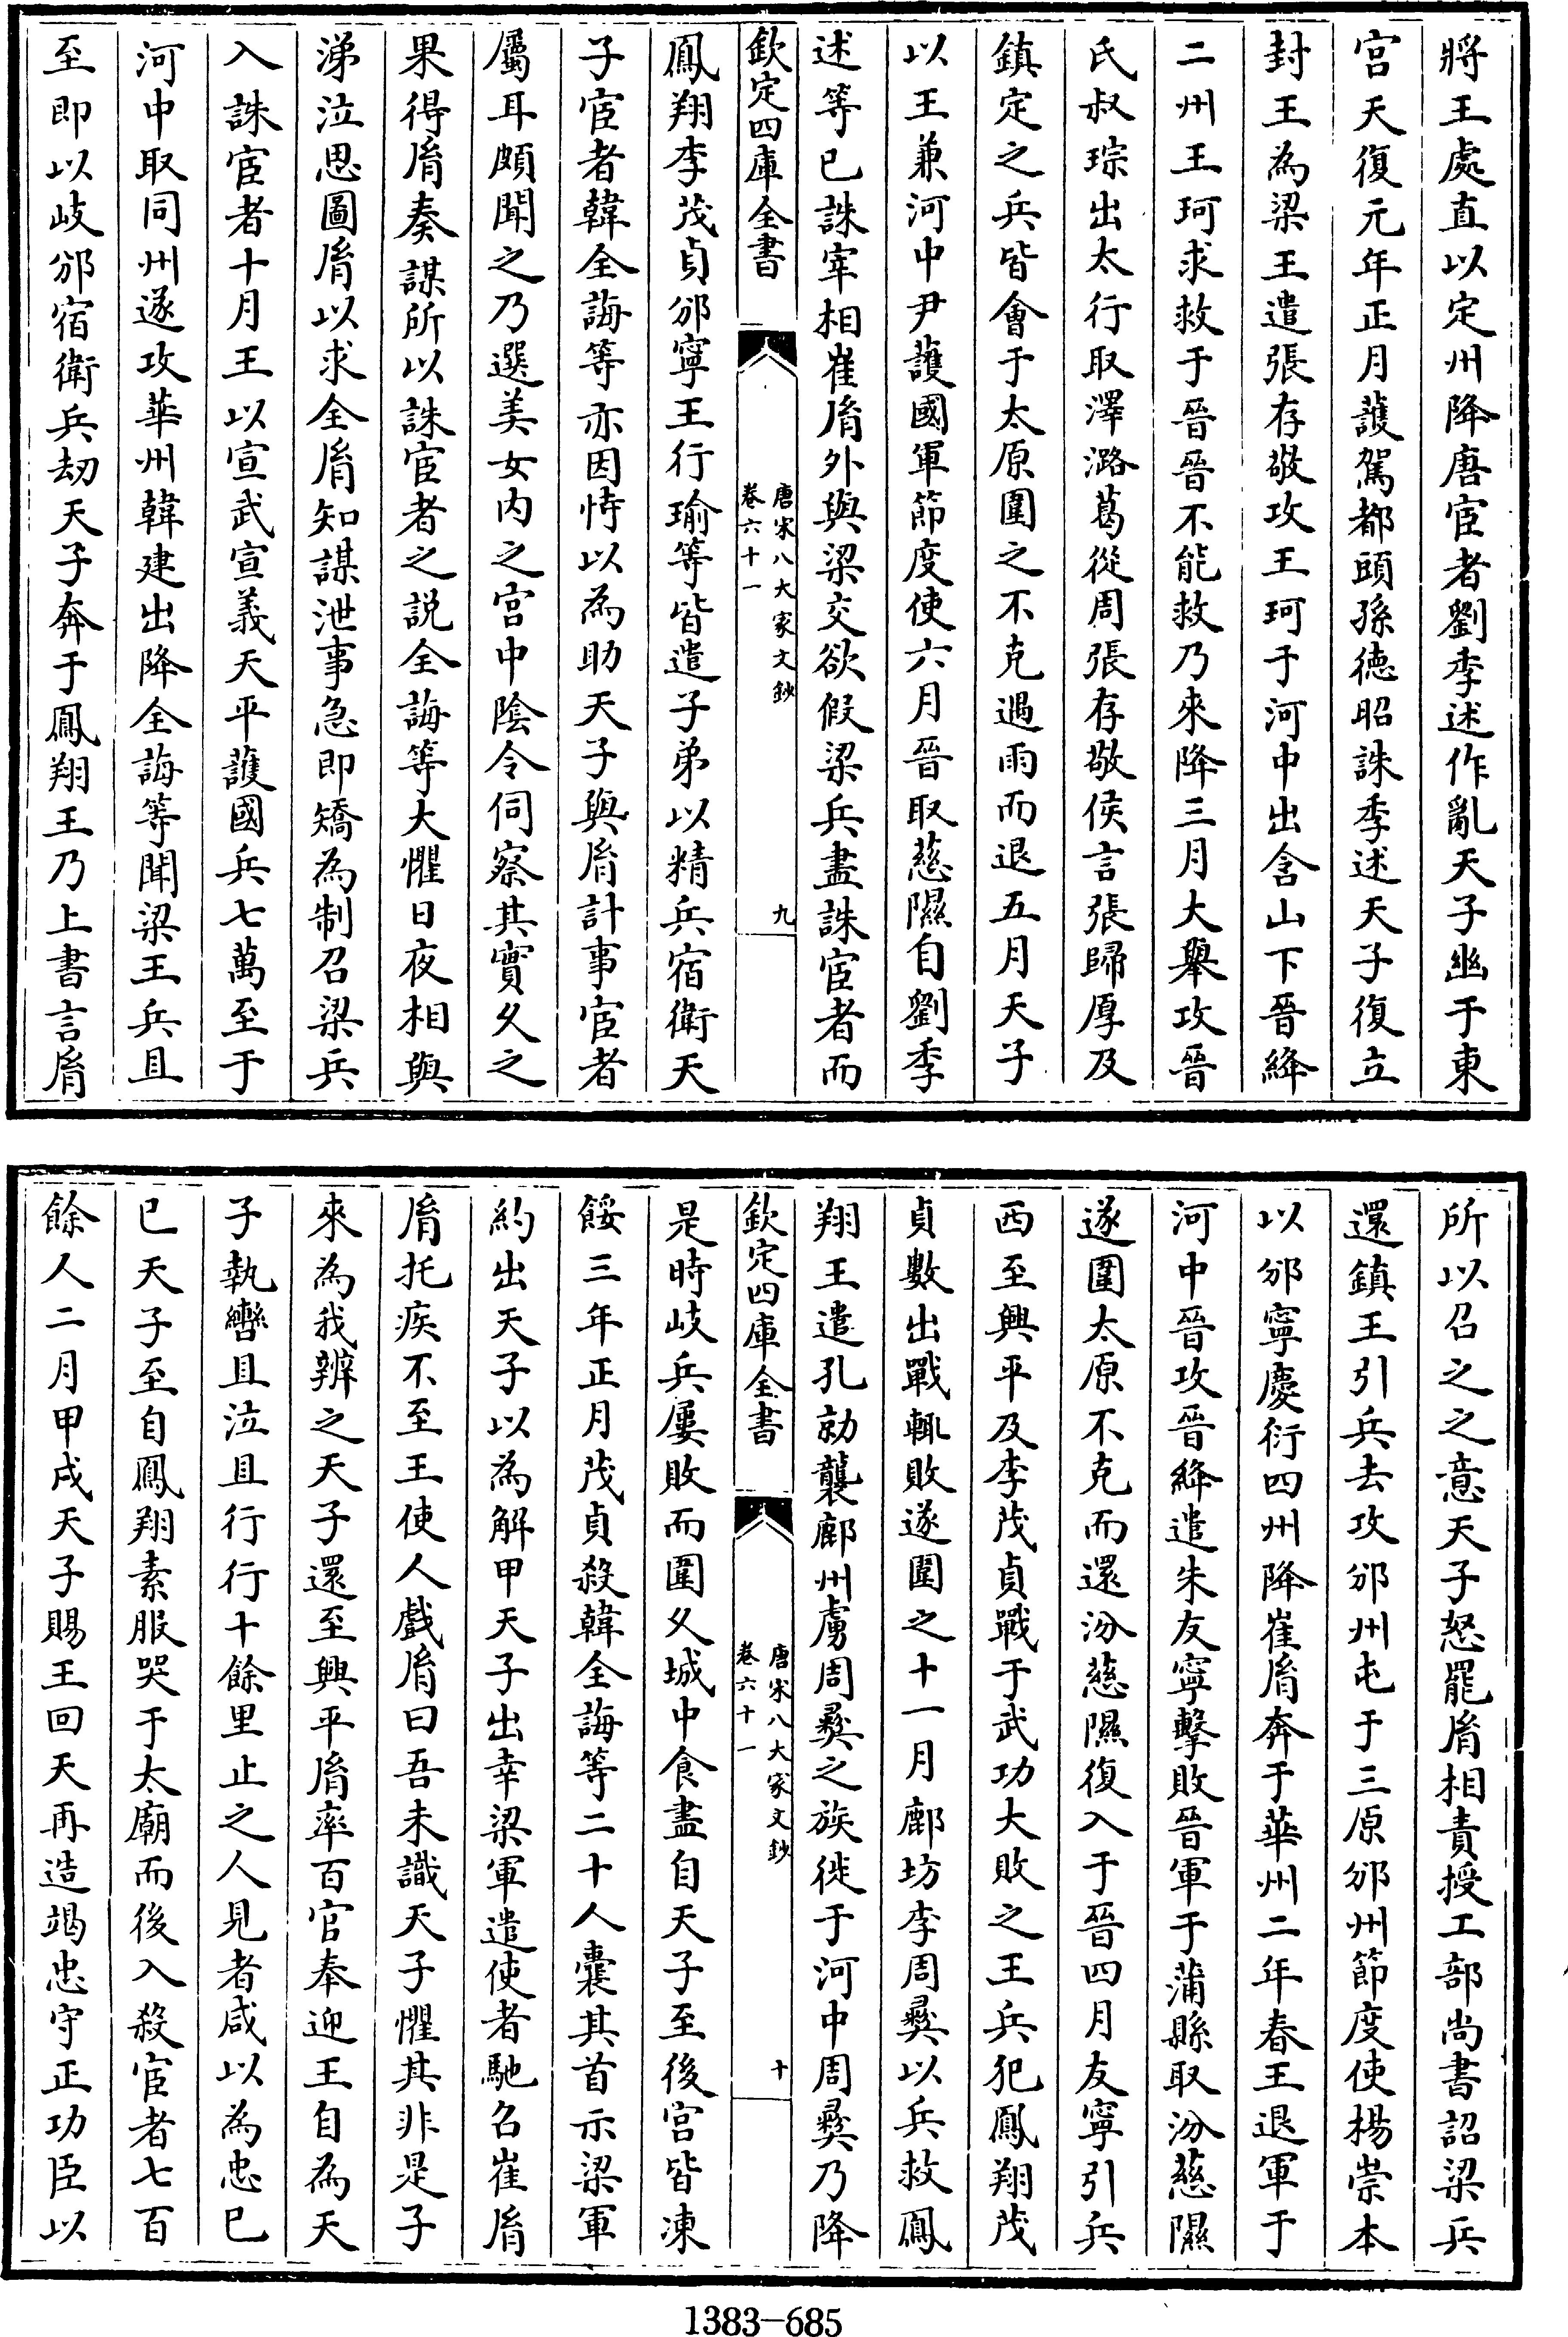 將王處直以定州降唐宦者劉季述作亂天子幽于東
宫天復元年正月護駕都頭孫德昭誅季述天子復立
封王為梁王遣張存敬攻王珂于河中出含山下晉絳
二州王珂求救于晉晉不能救乃來降三月大舉攻晉
氏叔琮出太行取澤潞葛從周張存敬侯言張歸厚及
鎮定之兵皆會于太原圍之不克遇雨而退五月天子
以王兼河中尹護國軍節度使六月晉取慈隰自劉季
述等已誅宰相崔𦙍外與梁交欲假梁兵盡誅宦者而
欽定四庫全書
唐宋八大家文鈔
卷六十一
九
鳳翔李茂貞邠寧王行瑜等皆遣子弟以精兵宿衛天
子宦者韓全誨等亦因恃以為助天子與𦙍計事宦者
屬耳頗聞之乃選美女内之宫中陰令伺察其實久之
果得𦙍奏謀所以誅宦者之説全誨等大懼日夜相與
涕泣思圖𦙍以求全𦙍知謀泄事急即矯為制召梁兵
入誅宦者十月王以宣武宣義天平護國兵七萬至于
河中取同州遂攻華州韓建出降全誨等聞梁王兵且
至即以岐邠宿衛兵劫天子奔于鳳翔王乃上書言𦙍
所以召之之意天子怒罷𦙍相責授工部尚書詔梁兵
還鎮王引兵去攻邠州屯于三原邠州節度使楊崇本
以邠寧慶衍四州降崔𦙍奔于華州二年春王退軍于
河中晉攻晉絳遣朱友寧擊敗晉軍于蒲縣取汾慈隰
遂圍太原不克而還汾慈隰復入于晉四月友寧引兵
西至興平及李茂貞戰于武功大敗之王兵犯鳳翔茂
貞數出戰輒敗遂圍之十一月鄜坊李周彝以兵救鳳
翔王遣孔勍襲鄜州虜周彝之族徙于河中周彝乃降
欽定四庫全書
唐宋八大家文鈔
卷六十一
十
是時岐兵屢敗而圍久城中食盡自天子至後宫皆凍
餒三年正月茂貞殺韓全誨等二十人囊其首示梁軍
約出天子以為解甲天子出幸梁軍遣使者馳召崔𦙍
𦙍托疾不至王使人戲𦙍曰吾未識天子懼其非是子
來為我辨之天子還至興平𦙍率百官奉迎王自為天
子執轡且泣且行行十餘里止之人見者咸以為忠已
已天子至自鳳翔素服哭于太廟而後入殺宦者七百
餘人二月甲戌天子賜王回天再造竭忠守正功臣以
1383-685